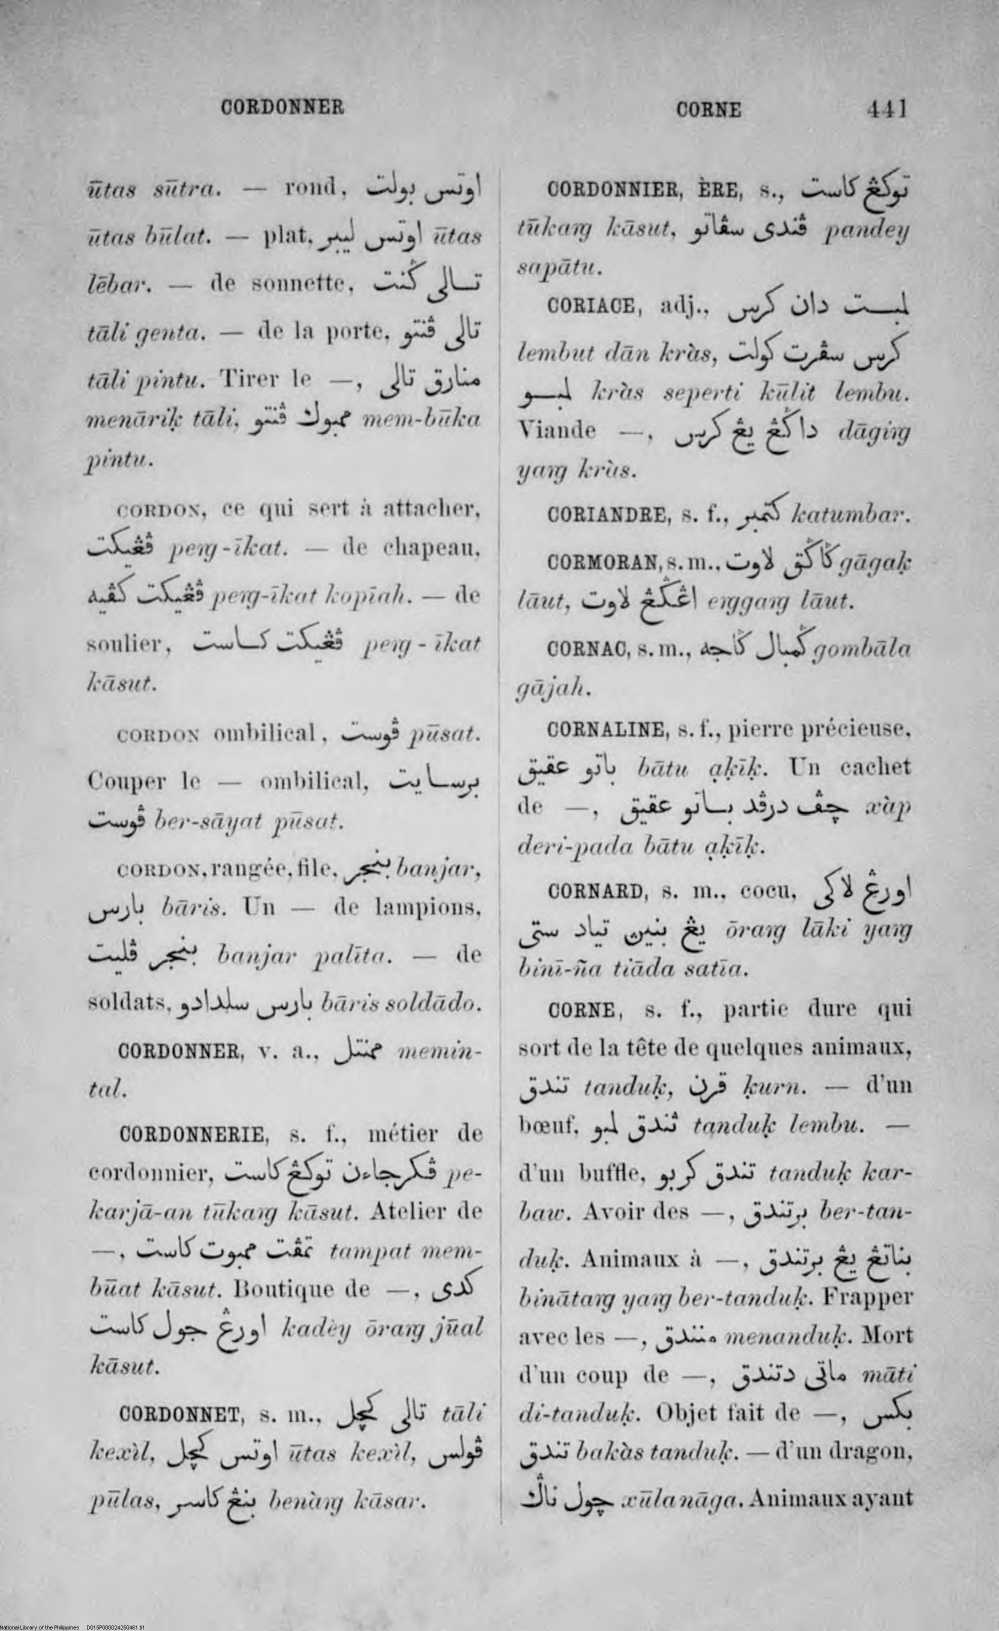 CORDONNER
CORNE 441
ūtas sūtra. — rond, اوتس بولت
ūtas būlat. — plat, اوتس ليبر ūtas
lēbar. — de sonnette, تالى ݢنت
tāli genta. — de la porte, تالى ڤنتو
tāli pintu. Tirer le —, منارق تالى
menārik̤ tāli, ممبوك ڤنتو mem-būka
pintu.
CORDON, ce qui sert à attacher,
ڤڠيكت peng-īkat. — de chapeau,
ڤڠيكت كڤيه peng-īkat kopīah. — de
soulier, ڤڠيكت كاست peng-īkat
kāsut.
CORDON ombilical, ڤوست pūsat.
Couper le — ombilical, برسايت
ڤوست ber-sāyat pūsat.
CORDON, rangée, file, بنجر banjar,
بارس bāris. Un — de lampions,
بنجر ڤليت banjar palīta. — de
soldats, بارس سلدادو bāris soldādo.
CORDONNER, v. a., ممنتل memin-
tal.
CORDONNERIE, s. f., métier de
cordonnier, ڤكرجاءن توكڠ كاست pe-
karjā-an tūkang kāsut. Atelier de
—, تمڤت ممبوت كاست tampat mem-
būat kāsut. Boutique de —, كدى
اورڠ جول كاست kadèy ōrang jūal
kāsut.
CORDONNET, s. m., تالى كچل tāli
kexìl, اوتس كچل ūtas kexìl, ڤولس
pūlas, بنڠ كاسر benàng kāsar.
CORDONNIER, ÈRE, s., توكڠ كاست
tūkang kāsut, ڤندى سڤاتو pandey
sapātu.
CORIACE, adj., لمبت دان كرس
lembut dān kràs, كرس سڤرت كولت
لمبو kràs seperti kūlit lembu.
Viande —, داݢڠ يڠ كرس dāging
yang kràs.
CORIANDRE, s. f., كتمبر katumbar.
CORMORAN, s. m., ݢاݢق لاوت gāgak̤
lāut, اڠݢڠ لاوت enggang lāut.
CORNAC, s. m., ݢمبال ݢاجه gombāla
gājah.
CORNALINE, s. f., pierre précieuse,
باتو عقيق bātu ạk̤īk̤. Un cachet
de —, چڤ درڤد باتو عقيق xàp
deri-pada bātu ạk̤īk̤.
CORNARD, s. m., cocu, اورڠ لاكى
يڠ بنين تياد ستى ōrang lāki yang
binī-ña tiāda satīa.
CORNE, s. f., partie dure qui
sort de la tête de quelques animaux,
تندق tanduk̤, قرن k̤urn. — d'un
bœuf, تندق لمبو tanduk̤ lembu. —
d'un buffle, تندق كربو tanduk̤ kar-
baw. Avoir des —, برتندق ber-tan-
duk̤. Animaux à —, بناتڠ يڠ برتندق
binātang yang ber-tanduk̤. Frapper
avec les —, مننداق menanduk̤. Mort
d'un coup de —, ماتى دتندق māti
di-tanduk̤. Objet fait de —, بكس
تندق bakàs tanduk̤. — d'un dragon,
چول ناݢ xūla nāga. Animaux ayant
National Library of the Philippines